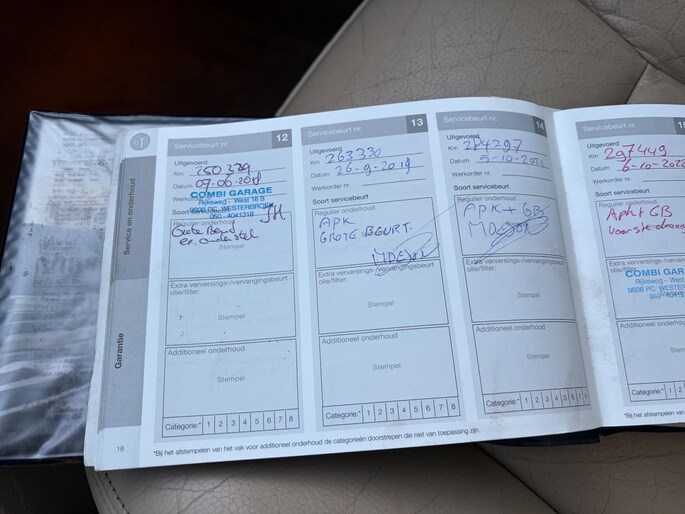 Service en onderhoud
Garantie
18
Servicebeurt nr. 12
Uitgevoerd
Km
Datum 07-06-2018
Werkorder
COMBI GARAGE
Rijksweg - West 16 B
9608 PC WESTERBROEK
050 - 4041318
Soort servicebeurt
Regulier onderhoud
Grote Beurt
Stempel
Extra verversings-/vervangingsbeurt
olie/filter:
Stempel
Additioneel onderhoud
Stempel
Categorie:* 1 2 3 4 5 6 7 8
Servicebeurt nr. 13
Uitgevoerd
Km 263330
Datum 26-9-2019
Werkorder nr.
Soort servicebeurt
Regulier onderhoud
APK
GROTE BEURT.
Extra verversings-/vervangingsbeurt
olie/filter:
Stempel
Additioneel onderhoud
Stempel
Categorie:* 1 2 3 4 5 6 7 8
Servicebeurt nr. 14
Uitgevoerd
Km
Datum
Werkorder nr.
Soort servicebeurt
Regulier onderhoud
APK + GB
Extra verversings-/vervangingsbeurt
olie/filter:
Stempel
Additioneel onderhoud
Stempel
Categorie:* 1 2 3 4 5 6 7
Servicebeurt nr.
Uitgevoerd
Km 297449
Datum
Werkorder nr.
Soort servicebeurt
Regulier onderhoud
Apk + GB
Extra verversings-/vervangingsbeurt
olie/filter:
COMBI GARAGE
Rijksweg - West
9608 PC WESTERB
Additioneel onderhoud
Stempel
Categorie:* 1 2 3
*Bij het afstempelen van het vak voor additioneel onderhoud de categorieën doorstrepen die niet van toepassing zijn.
*Bij het afstempelen van